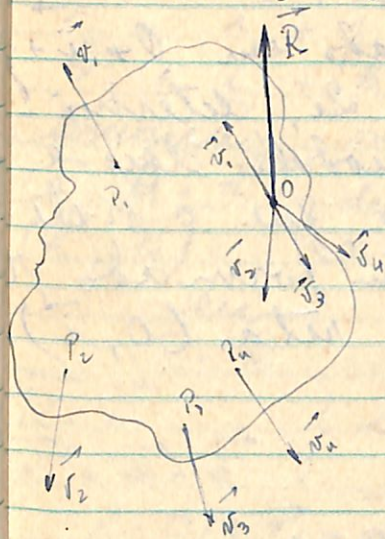 R
v₁
P₁
v₁
O
v₄
v₂
v₃
P₂
P₄
P₃
v₄
v₂
v₃